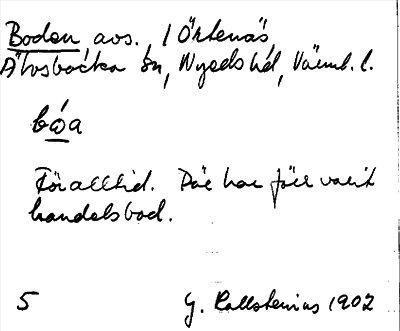 Boden avs. / Örtenäs,
Älvsbacka sn, Nyeds hd, Värml. l.
bωa
För alltid. Där har förr varit
handelsbod.
5 G. Kallstenius 1902